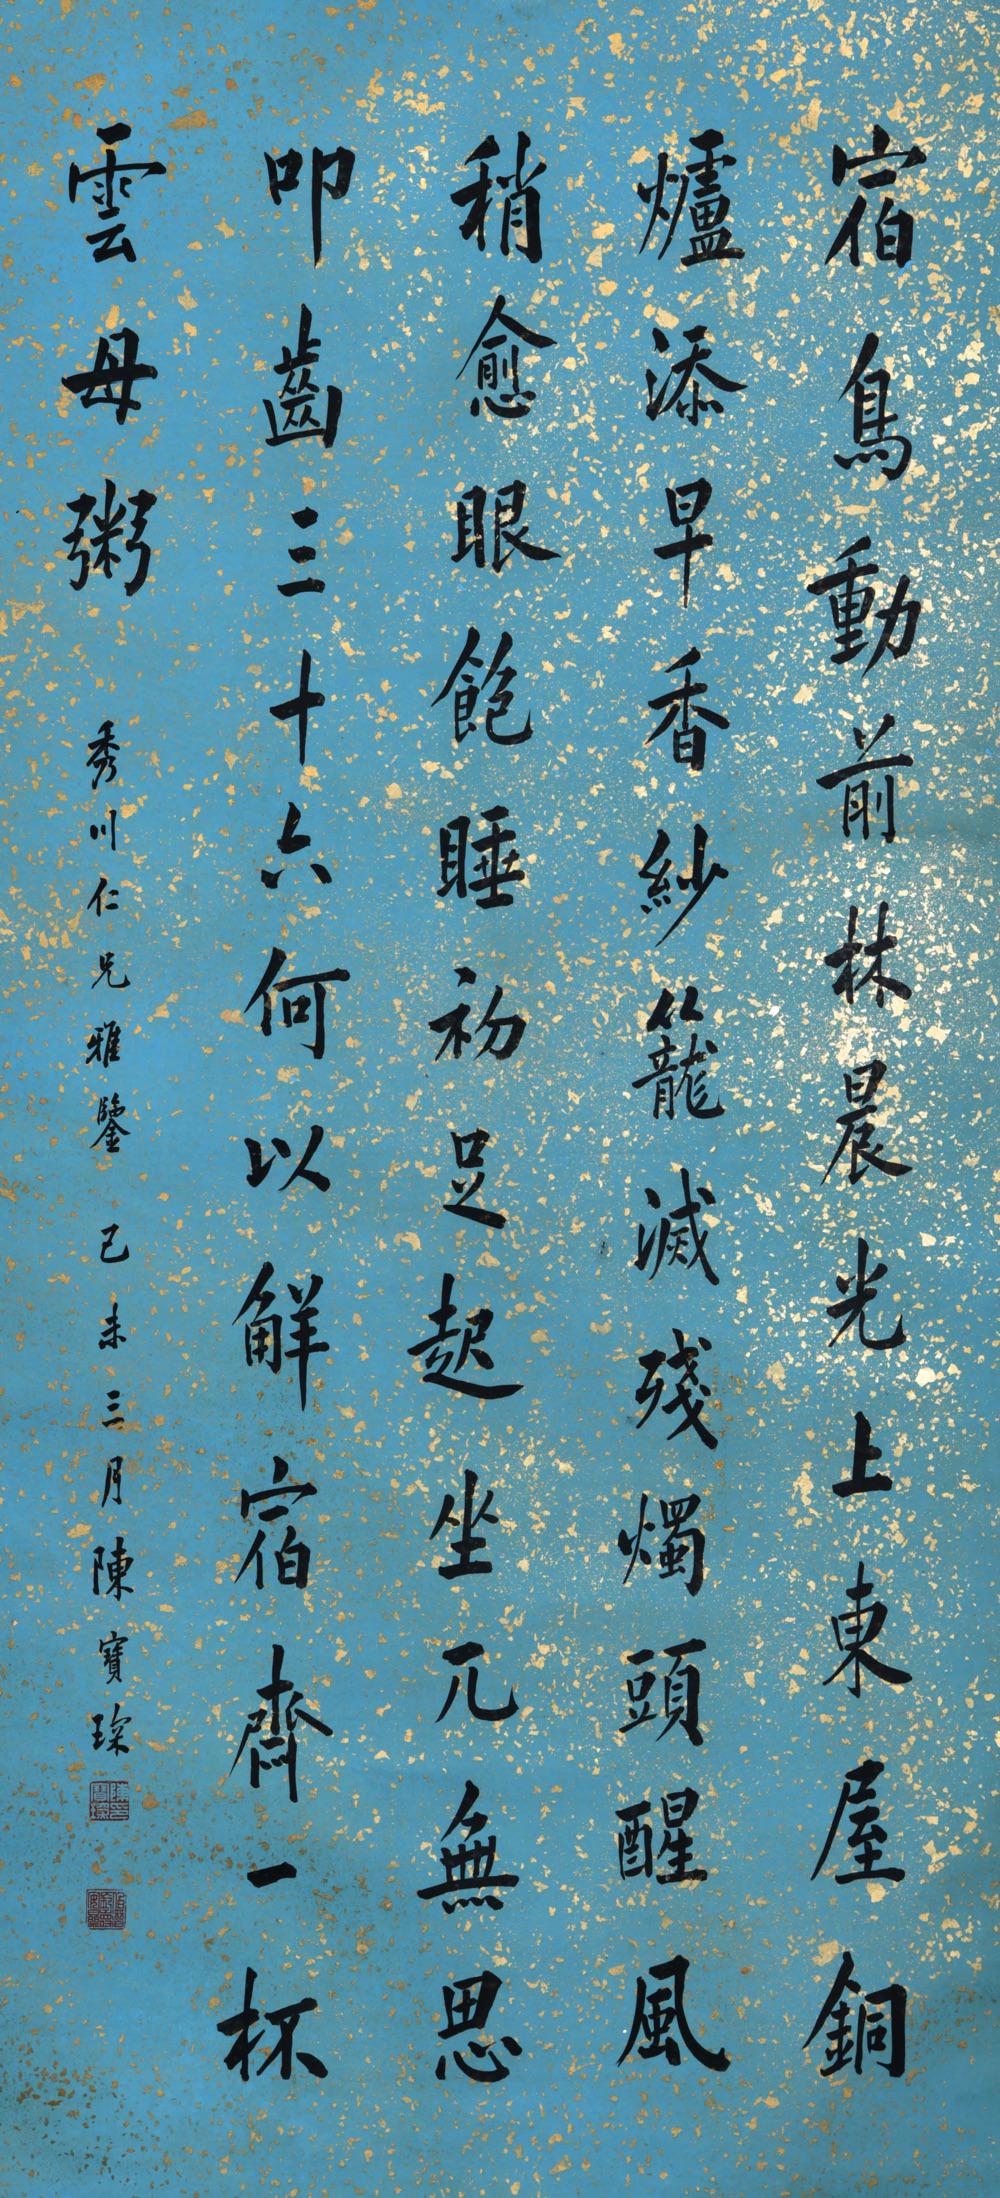 宿鳥動前林晨光上東屋銅
爐添早香紗籠滅殘燭頭醒風
稍愈眼飽睡初足起坐兀無思
叩齒三十六何以解宿齋一杯
雲母粥 秀川仁兄雅鑒 己未三月陳寶琛